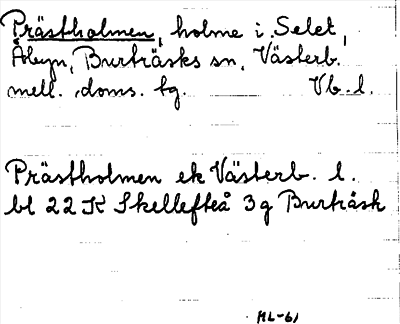 Prästholmen, holme i Selet,
Åbyn, Burträsks sn, Västerb.
mell. doms. tg. Vb. l.
Prästholmen ek Västerb. l.
bl 22 K Skellefteå 3 g Burträsk
ML-61